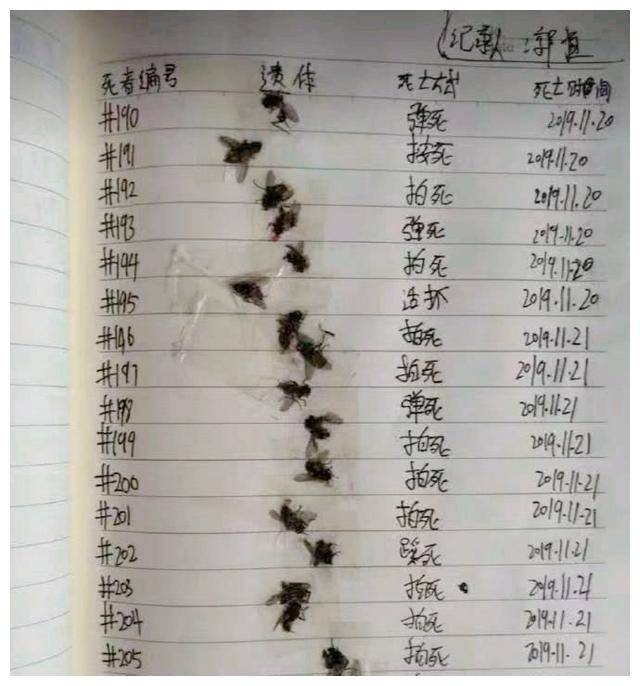 记录人:郭直
死者编号 遗体 死亡方式 死亡时间
#190 弹死 2019.11.20
#191 按死 2019.11.20
#192 拍死 2019.11.20
#193 弹死 2019.11.20
#194 拍死 2019.11.20
#195 活抓 2019.11.20
#196 拍死 2019.11.21
#197 拍死 2019.11.21
#198 弹死 2019.11.21
#199 拍死 2019.11.21
#200 拍死 2019.11.21
#201 拍死 2019.11.21
#202 踩死 2019.11.21
#203 拍死 2019.11.21
#204 拍死 2019.11.21
#205 拍死 2019.11.21